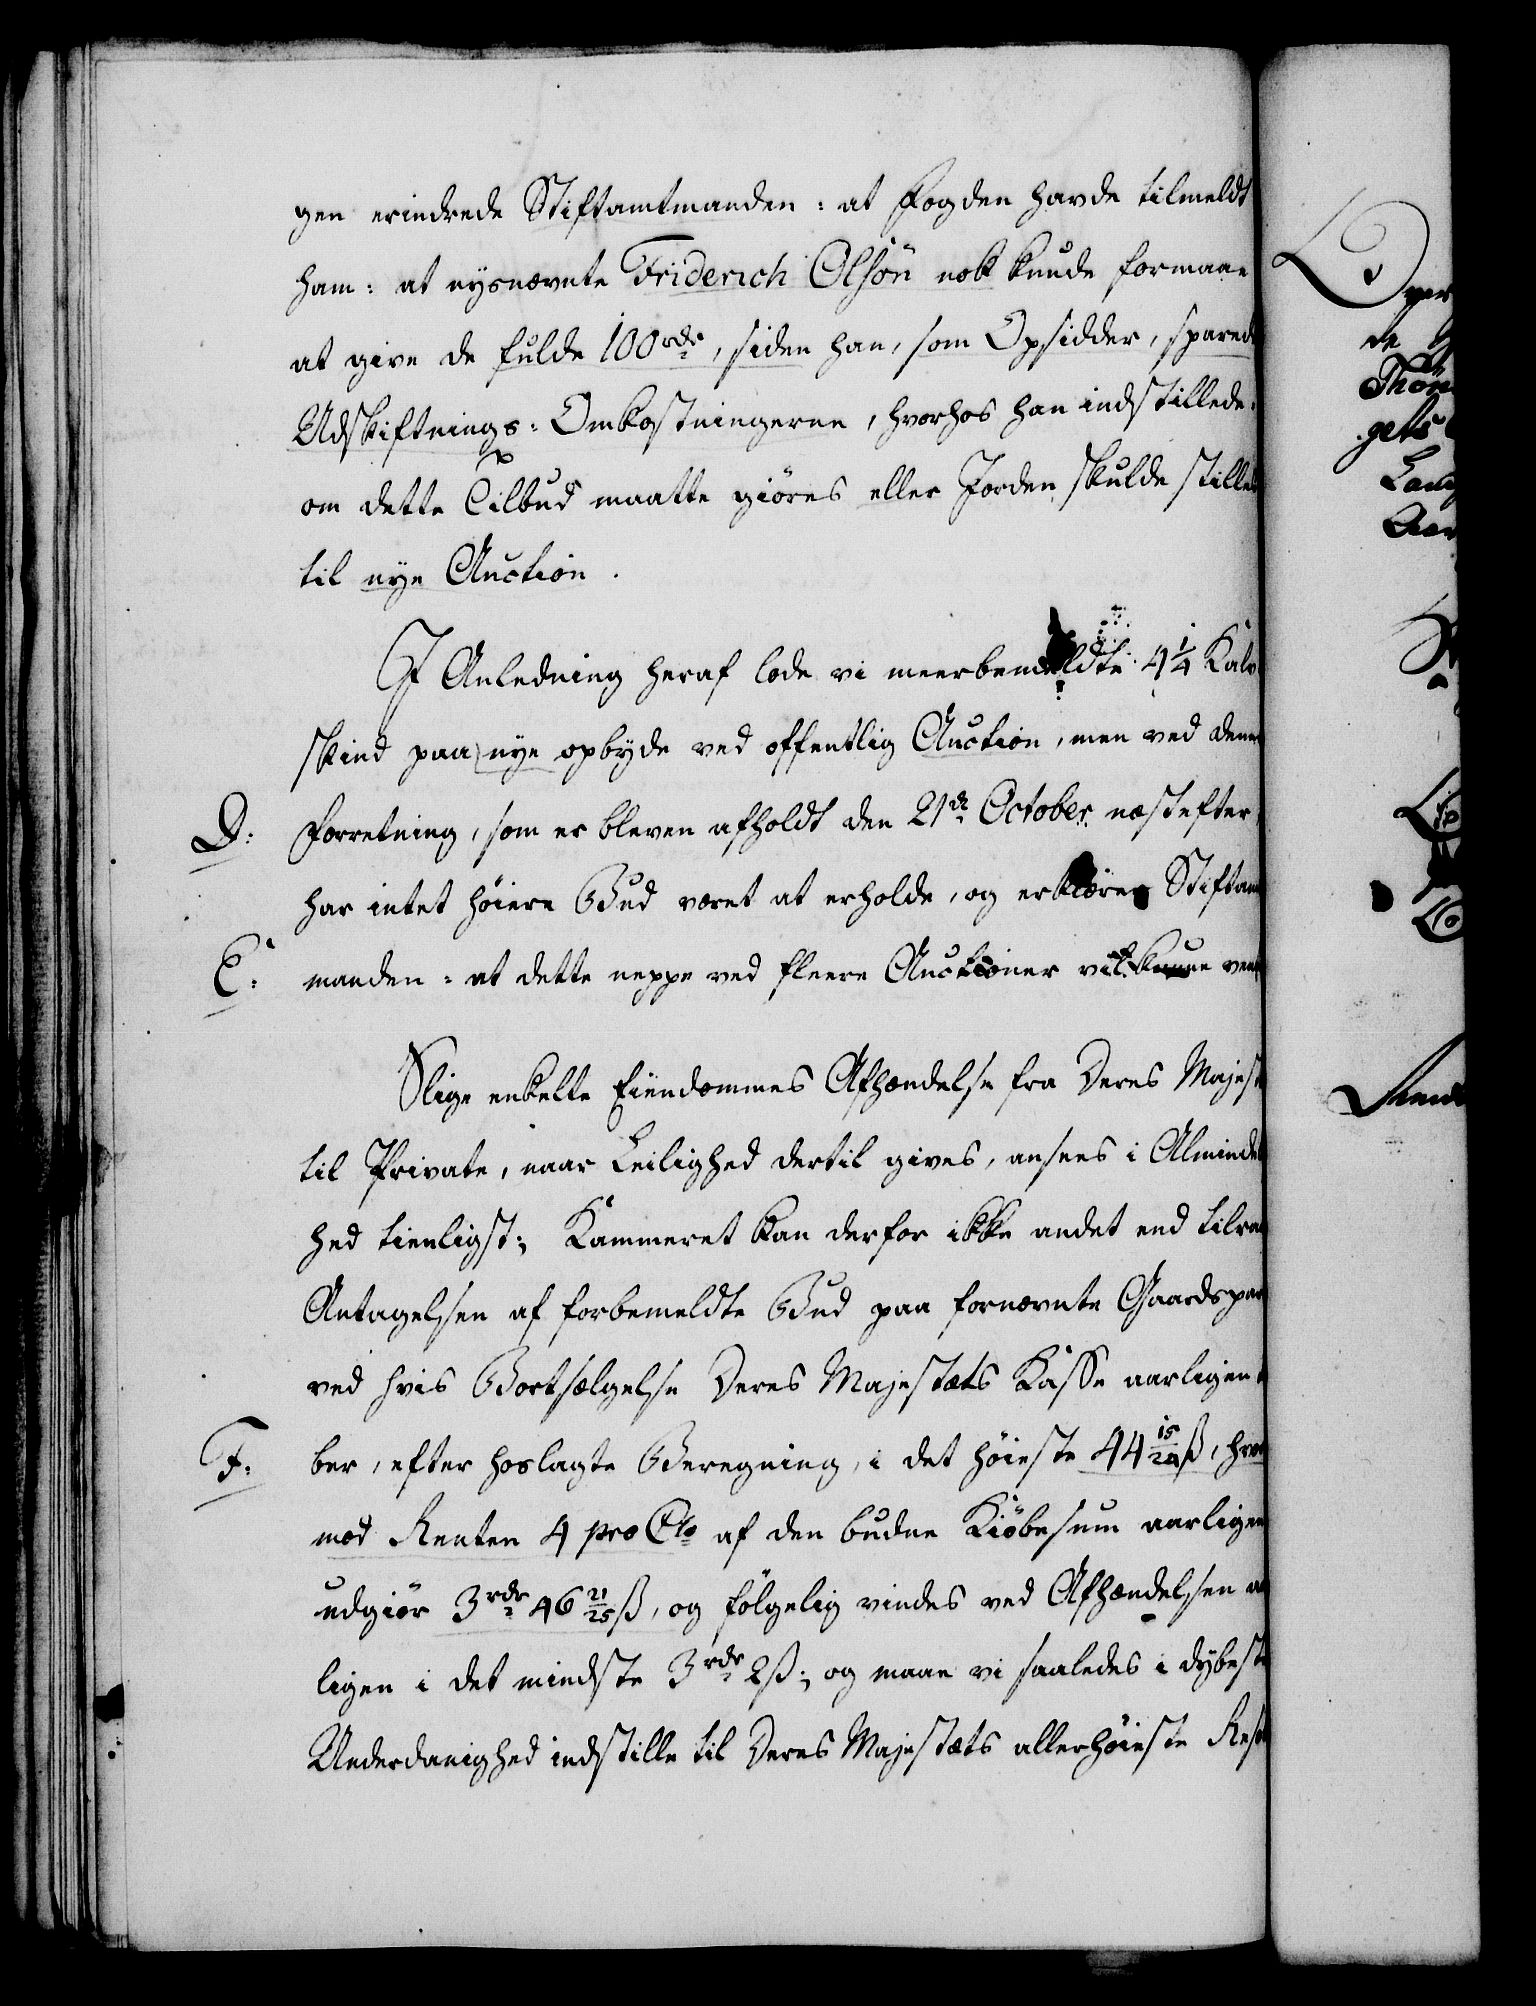 gen erindrede Stiftamtmanden: at Fogden havde tilmeldt
ham: at nysnævnte Friderich Olsön nok kunde formaae
at give de fulde 100 rdr, siden han, som Opsidder, sparede
Udskiftnings-Omkostningerne, hvorhos han indstillede:
om dette Tilbud maatte giöres eller Jorden skulde stilles
til nye Auction.
I Anledning heraf lode vi meerbemeldte 4 1/4 Kalv
skind paa nye opbyde ved offentlig Auction, men ved denne
D: Forretning, som er bleven afholdt den 21de October næstefter,
har intet höiere Bud været at erholde, og erklærer Stiftamt
E: manden: at dette neppe ved fleere Auctioner vil kunne vent
Slige enkelte Eiendommes Afhændelse fra Deres Majest
til Private, naar Leilighed dertil gives, ansees i Alminde
hed tienligst; Kammeret kan derfor ikke andet end tilraa
Antagelsen af forbemeldte Bud paa fornævnte Gaardspar
ved hvis Bortsælgelse Deres Majestæts Kasse aarligen
F: ber, efter hoslagte Beregning, i det höieste 44 15/24 ß, hvor
mod Renten 4 pro Cto af den budne Kiöbesum aarligen
udgiör 3 rdr 46 21/25 ß, og fölgelig vindes ved Afhændelsen a
ligen i det mindste 3 rdr 2 ß; og maae vi saaledes i dybeste
Underdanighed indstille til Deres Majestæts allerhöieste Reso
de
Thön
gets